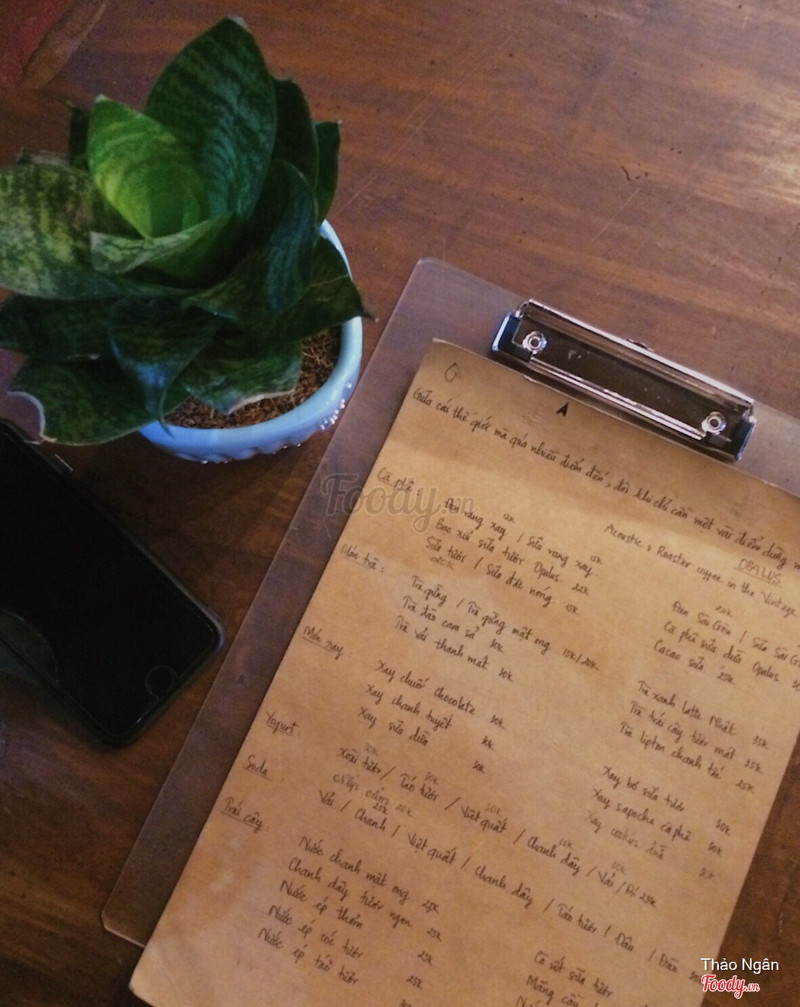 Giữa cái thế giới mà quá nhiều điểm đến, đôi khi chỉ cần một vài điểm dừng
Acoustic & Roaster coffee in the Vintage
OPALUS
Cà phê:
Đen rang xay / Sữa rang xay
Bạc xỉu sữa tươi Opalus 22k
Sữa tươi / Sữa đặc nóng 15k
20k
Đen Sài Gòn / Sữa Sài
Cà phê sữa dừa Opalus
Cacao sữa 25k
Món trà:
Trà gừng / Trà gừng mật ong 15k/20k
Trà đào cam sả 30k
Trà vải thanh mát 30k
Trà xanh latte Nhật 35k
Trà trái cây tươi mát 35k
Trà lipton chanh 25k
Món xay:
Xay chuối chocolate 30k
Xay chanh tuyết 30k
Xay sữa dừa 30k
Xay bơ sữa tươi 30k
Xay sapoche cà phê 30k
Xay cookies 30k
Yogurt:
Xoài tươi / Táo tươi / Việt quất / Chanh dây / Vải / Đá 25k
Soda
Vải / Chanh / Việt quất / Chanh dây / Táo tươi / Dâu / Đào 30k
Trái cây:
Nước chanh mật ong 25k
Chanh dây tươi ngon 25k
Nước ép thơm 25k
Nước ép cóc tươi 25k
Nước ép táo tươi 30k
Cà rốt sữa tươi
Mãng cầu
Foody.vn
Thảo Ngân
Foody.vn